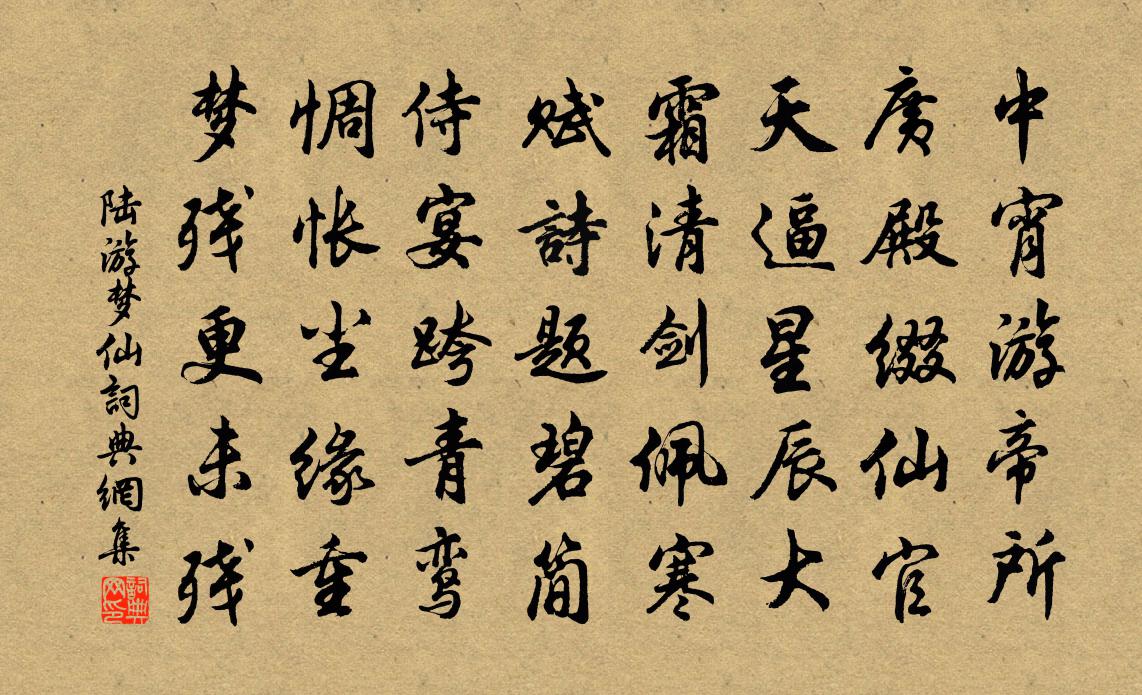 中宵游帝所
广殿缀仙官
天逼星辰大
霜清剑佩寒
赋詩题碧简
侍宴跨青鸾
惆怅尘缘重
梦残更未残
陆游梦仙詞典網集
詞典网印